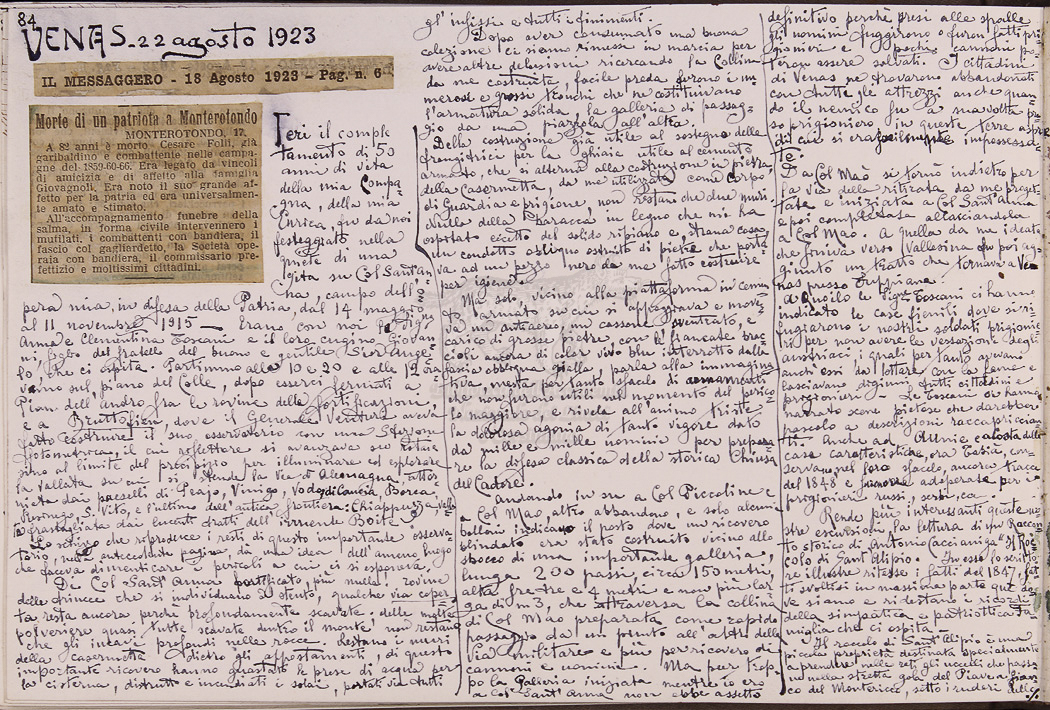 84
VENAS - 22 agosto 1923
IL MESSAGGERO - 18 Agosto 1923 - Pag. n. 6
Morte di un patriota a Monterotondo
MONTEROTONDO, 17.
A 82 anni è morto Cesare Folli, già
garibaldino e combattente nelle campa-
gne del 1859-60-66. Era legato da vincoli
di amicizia e di affetto alla famiglia
Giovagnoli. Era noto il suo grande af-
fetto per la patria ed era universalmen-
te amato e stimato.
All'accompagnamento funebre della
salma, in forma civile intervennero i
mutilati, i combattenti con bandiera, il
fascio col gagliardetto, la Società ope-
raia con bandiera, il commissario pre-
fettizio e moltissimi cittadini.
Ieri il comple
tamento di 50
anni di vita
della mia Compa-
gna, della mia
Enrica, fu da noi
festeggiato nella
quiete di una
gita su Col Sant'An
na, campo dell'o
pera mia, in difesa della Patria, dal 14 maggio
al 11 novembre 1915 — Erano con noi le Sigre
Anna e Clementina Toscani e il loro cugino Giovan
ni, figlio del fratello del buono e gentile Sior Ange
lo, che ci ospita. Partimmo alle 10 e 20 e alle 12 era
vamo sul piano del Colle, dopo esserci fermati a
Pian dell'andro fra le rovine delle fortificazioni,
e a, dove il Generale Ventura aveva
fatto costruire il suo osservatorio con una Stazione
fotoelettrica, il cui riflettore si avanzava su rotaie
sino al limite del precipizio per illuminare ed esplorare
la vallata su cui si stende la Via d'Alemagna, atto
niata dai paeselli di Peajo, Vinigo, Vodo di Cadore, Borca,
S. Vito, e l'ultimo dell'antica frontiera: Chiappuzza
dai lucenti tratti dell'irruente Boite.
Lo schizzo che riproduce i resti di questo importante osserva-
torio, nella antecedente pagina, dà una idea dell'ameno luogo
che faceva dimenticare i pericoli a cui ci si esponeva.
Di Col Sant'Anna fortificato, più nulla: rovine
delle trincee che si individuano a stento, qualche via coper-
ta resta ancora perchè profondamente scavata, delle molte
polveriere quasi tutte scavate dentro il monte non restano
che gli incavi profondi nelle rocce. Restano i muri
della casermetta, dietro gli appostamenti, di questo
importante ricovero hanno guastato le prese di acqua per
la cisterna, distrutto e incendiati i solai, portati via tutti
gl'infissi e tutti i finimenti.
Dopo aver consumato una buona
colezione ci siamo rimessi in marcia per
avere altre delusioni ricercando la Collina
da me costruita, facile preda furono i nu
merosi e grossi tronchi che ne costituivano
l'armatura solida, la galleria di passag-
gio da una piazzola all'altra.
Della costruzione già utile al sostegno della
frangitrice per la ghiaia utile al cemento
armato, che si alterna alla costruzione in pietra
della Casermetta, da me utilizzata come corpo
di Guardia e prigione, non restano che due muri.
Nulla della baracca in legno che mi ha
ospitato eccetto del solido ripiano e, strana cosa,
un condotto obliquo costruito di pietre che porta
va ad un pozzo nero da me fatto costruire
per igiene.
Ma solo, vicino alla piattaforma in cemen
to armato su cui si appoggiava e move
va un antiaereo, un cassone sventrato, e
carico di grosse pietre, con le fiancate brac
cioli ancora di color vivo blu interrotto dalla
fascia obliqua gialla, parla alla immagina
tiva, mesta per tanto sfacelo di armamenti
che non furono utili nel momento del perico
lo maggiore, e rivela all'animo triste
la dolorosa agonia di tanto vigore dato
da mille e mille uomini per prepara
re la difesa classica della storica Chiusa
del Cadore.
Andando in su a Col Piccolin e
a Col Mao, altro abbandono, e solo alcuni
bolloni indicano il posto dove un ricovero
blindato era stato costruito vicino allo
sbocco di una importante galleria,
lunga 200 passi, circa 150 metri,
alta fra tre e 4 metri e non più lar
ga di m 3, che attraversa la collina
di Col Mao preparata come rapido
passaggio da un punto all'altro della
via militare e più per ricovero di
cannoni e uomini. Ma pur trop
po la Galleria iniziata mentre io ero
a Col Sant'Anna non ebbe assetto
definitivo perchè presi alle spalle
gli uomini fuggirono o furon fatti pri
gionieri e pochi cannoni po
terono essere salvati. I cittadini
di Venas ne trovarono abbandonati
con tutti gli attrezzi anche quan
do il nemico fu a sua volta
prigioniero in queste terre aspre
di cui si era facilmente impossessa-
to.
Da Col Mao si torna indietro per
la via della ritirata da me proget
tata e iniziata a Col Sant'Anna
e poi completata allacciandola
a Col Mao. A quella da me ideata
che finiva verso Vallesina fu poi ag
giunto un tratto che tornava a Ve
nas presso
Di quilo le Sigre Toscani ci hanno
indicato le case fienili dove si ri
fugiarono i nostri soldati prigionie
ri per non avere le vessazioni degli
austriaci, i quali per tanto avevano
anch'essi da lottare con la fame e
lasciavano digiuni tutti cittadini e
prigionieri — Le Toscani ci hanno
narrato scene pietose che darebbero
pascolo a descrizioni raccapriccian
ti. Anche ad e a Costa delle
case caratteristiche, ora Tesia, con-
servano, nel loro sfacelo, ancora tracce
del 1848 e furono adoperate per i
prigionieri russi, serbi, ca.
Rende più interessanti queste no
stre escursioni la lettura di un Raccon
to storico di Antonio Caccianiga "Il Roc
colo di Sant'Alipio". In esso lo scritto
re illustre ritesse i fatti del 1847, fat
ti svoltisi in massima parte qui do
ve siamo e vi destano i ricordi
della simpatica e patriottica fa
miglia che ci ospita —
"Il roccolo di Sant'Alipio è una
piccola proprietà destinata specialmente
a prendere nelle reti gli uccelli che passa
no nella stretta gola del Piave a fian
co del Montericco, sotto i ruderi dello